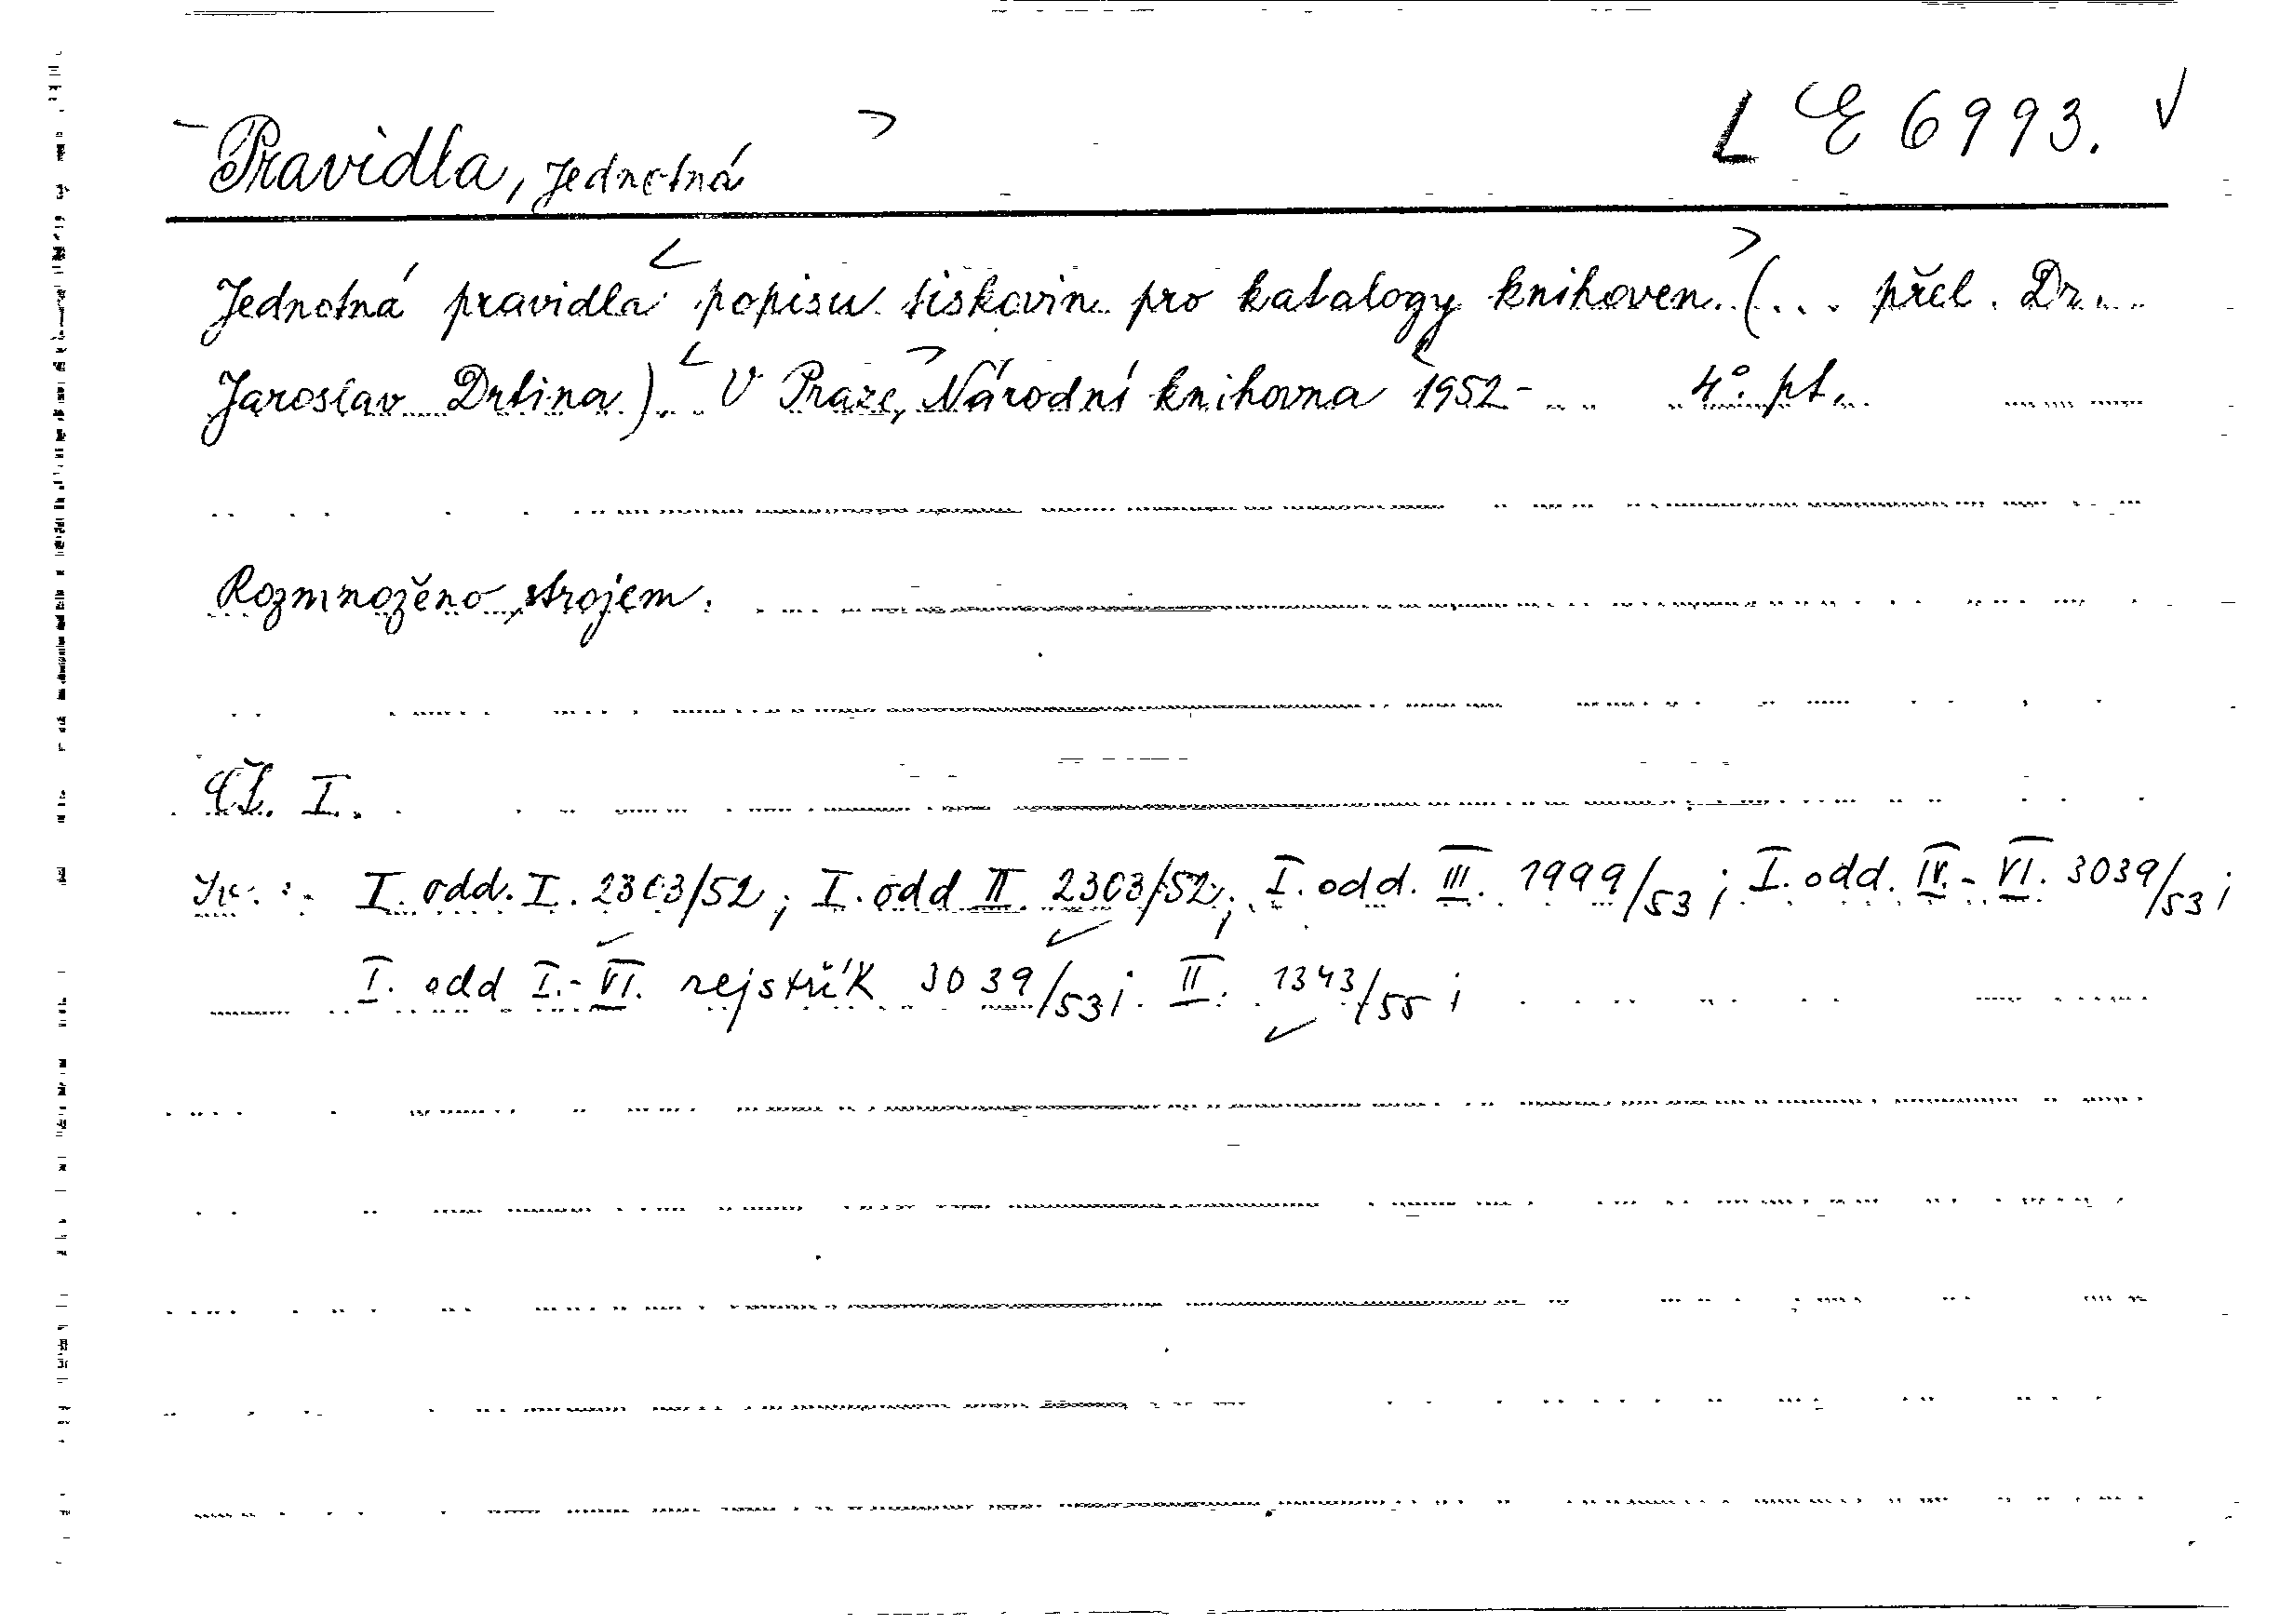 Pravidla, jednotná L E 6993.
Jednotná pravidla popisu tiskovin pro katalogy knihoven (... přel. Dr.
Jaroslav Drtina). V Praze, Národní knihovna 1952- 4° pt.
Rozmnoženo strojem.
Čš. I.
I. odd. I. 2303/52; I. odd II. 2303/52; I. odd. III. 1999/53; I. odd. IV.-VI. 3039/53;
I. odd I.-VI. rejstřík 3039/53; II. 1343/55;